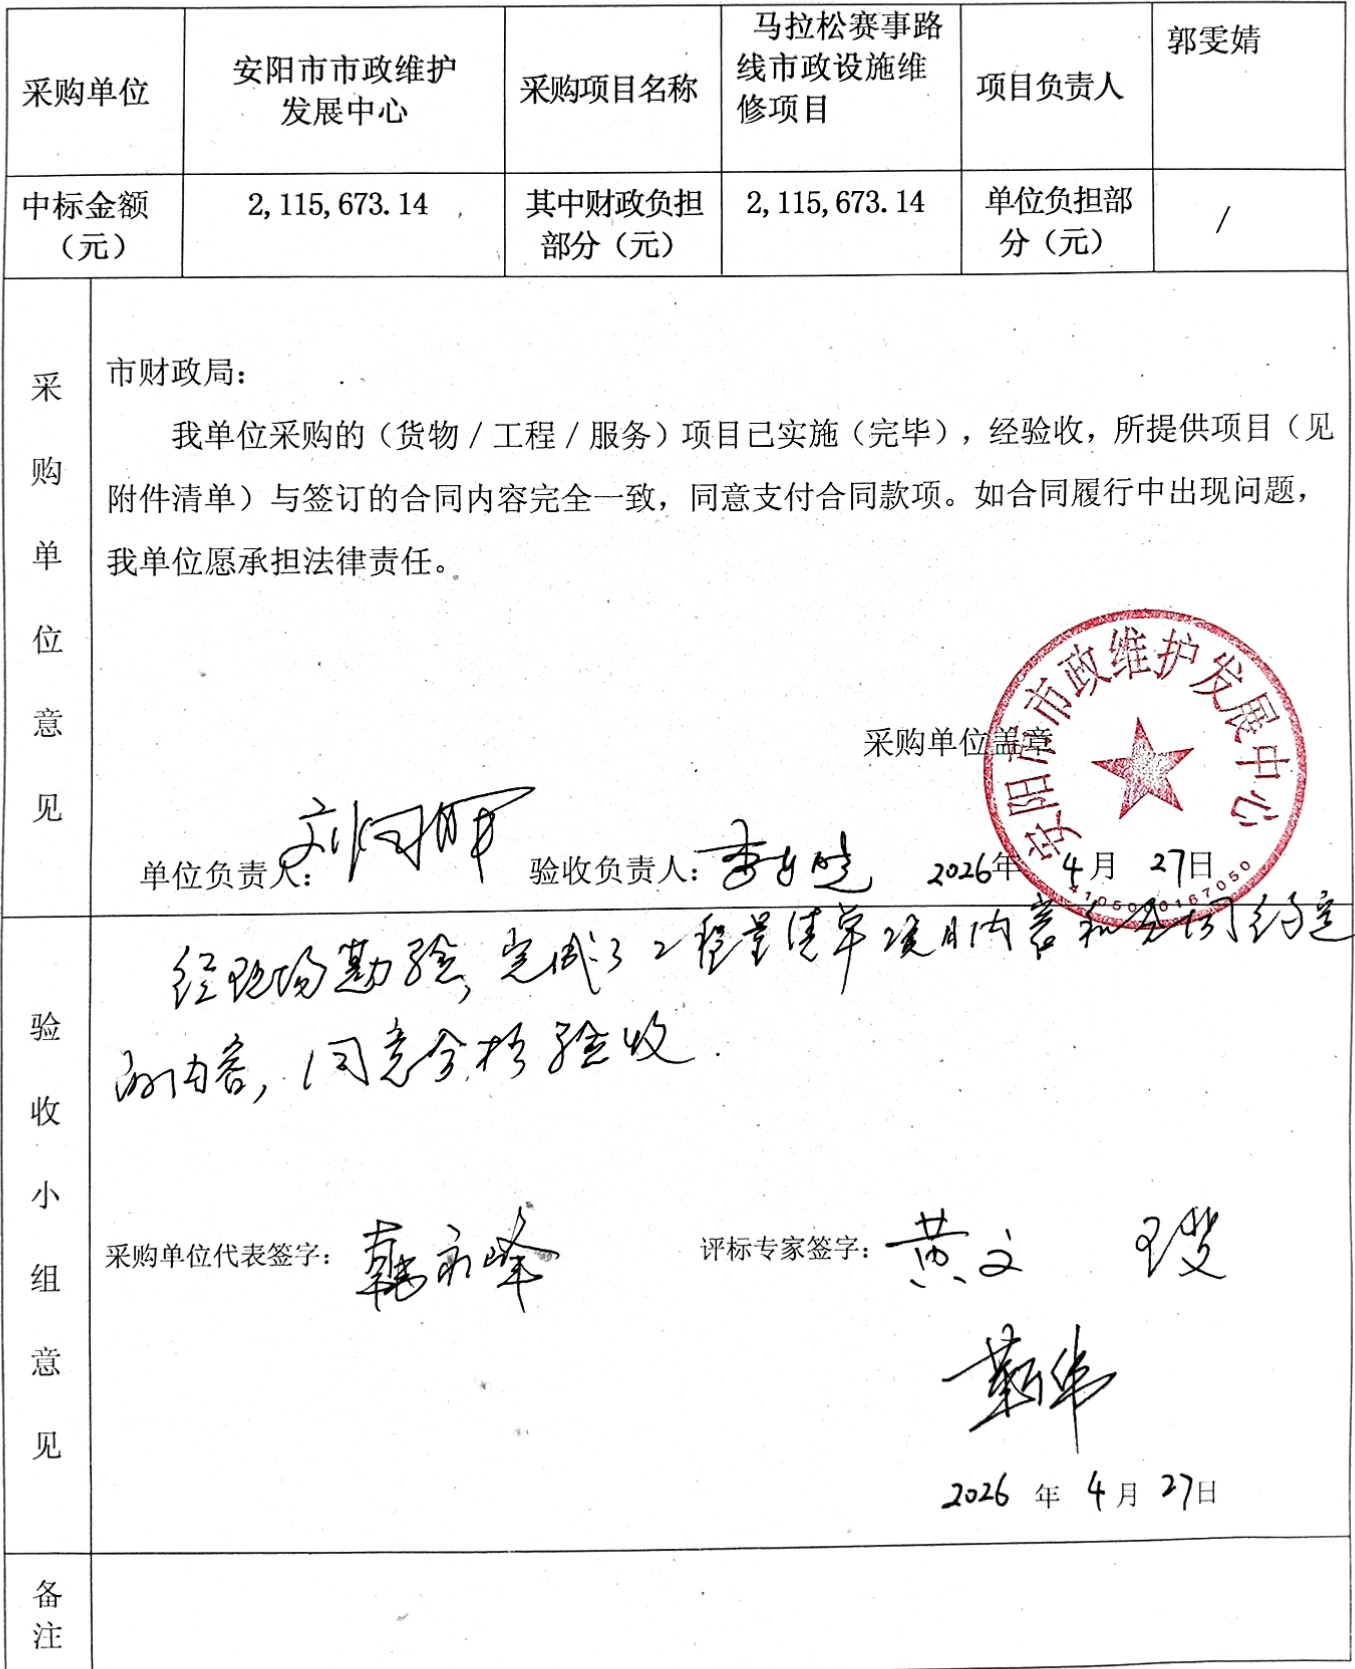 采购单位
安阳市市政维护
发展中心
采购项目名称
马拉松赛事路
线市政设施维
修项目
项目负责人
郭雯婧
中标金额
（元）
2,115,673.14
其中财政负担
部分（元）
2,115,673.14
单位负担部
分（元）
/
采购单位意见
市财政局：
我单位采购的（货物/工程/服务）项目已实施（完毕），经验收，所提供项目（见
附件清单）与签订的合同内容完全一致，同意支付合同款项。如合同履行中出现问题，
我单位愿承担法律责任。
采购单位盖章
安阳市市政维护发展中心
单位负责人：
验收负责人：
2026年 4月 27日
验收小组意见
经现场勘验，完成了工程量清单项目内容和合同约定
的内容，同意合格验收.
采购单位代表签字：韩永峰
评标专家签字：黄文
靳华
2026 年 4月 27日
备注